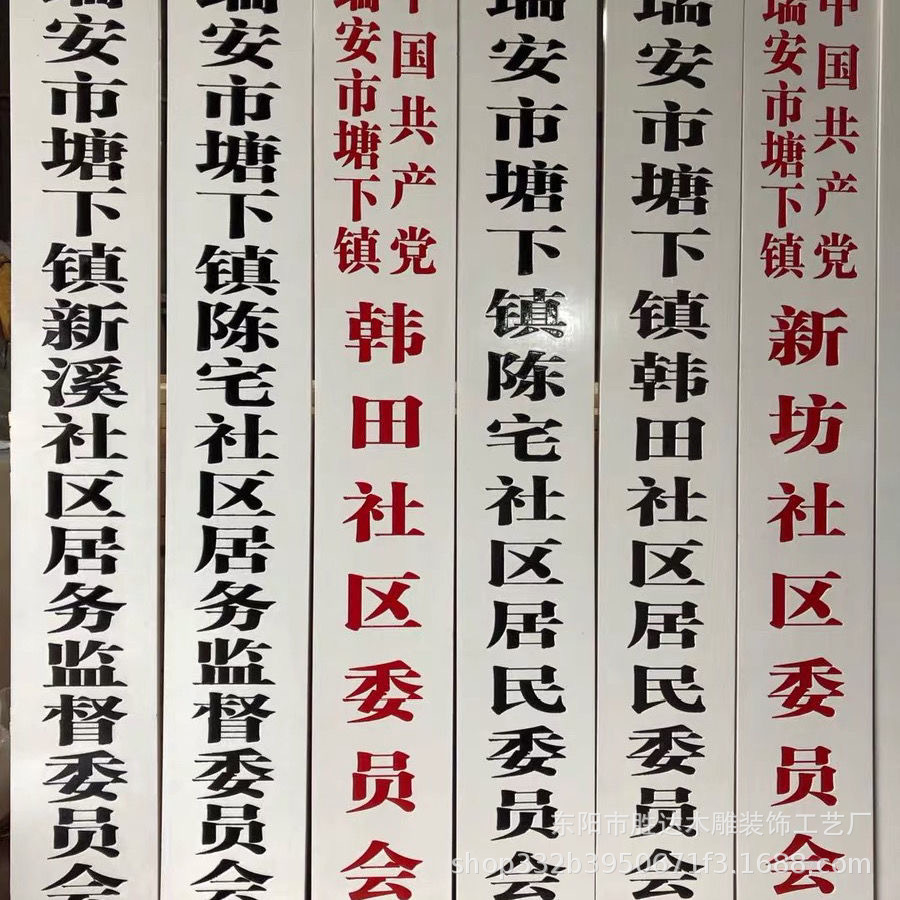 瑞安市塘下镇新溪社区居务监督委员会
瑞安市塘下镇陈宅社区居务监督委员会
中国共产党
瑞安市塘下镇
韩田社区委员会
瑞安市塘下镇陈宅社区居民委员会
瑞安市塘下镇韩田社区居民委员会
中国共产党
瑞安市塘下镇
新坊社区委员会
东阳市胜达木雕装饰工艺厂
shop332b3950671f3.1688.com